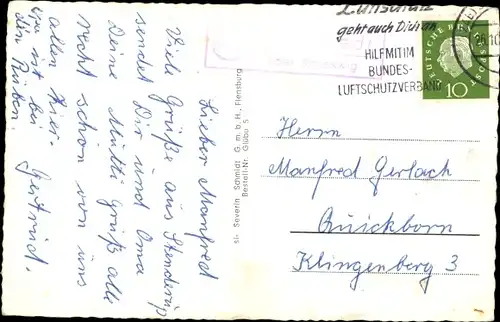 Lieber Manfred
Viele Grüße aus Stenderup
sendet Dir und Oma
Deine Mutti Grüß alle
recht schön von uns
allen hier.
bei
den Ruben.
Gertrud.
sk- Severin Schmidt G. m. b. H., Flensburg
Bestell-Nr. Glübu 5
Luftschutz
geht auch Dich an
HILF MIT IM
BUNDES-
LUFTSCHUTZVERBAND
DEUTSCHE BUNDESPOST
10
Herrn
Manfred Gerlach
Quickborn
Klingenberg 3